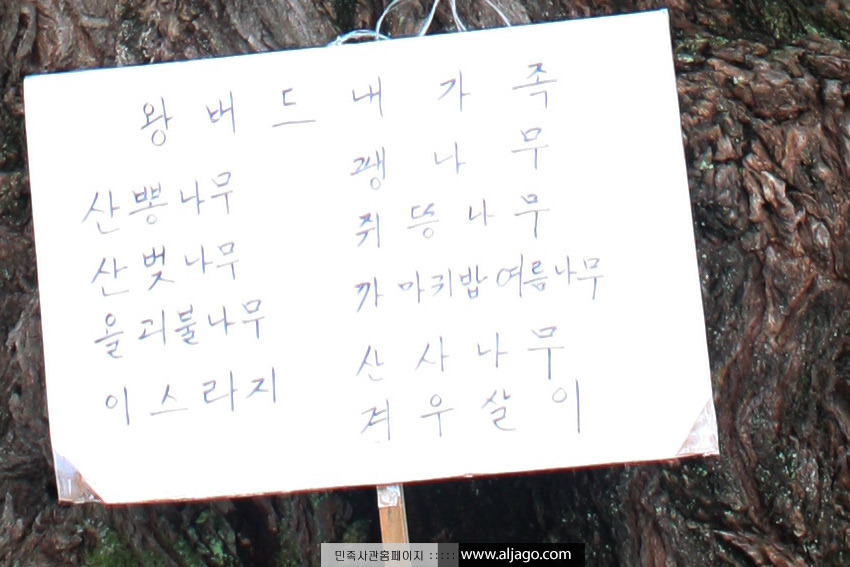 왕버드내가족
산뽕나무
산벚나무
올괴불나무
이스라지
팽나무
쥐똥나무
까마귀밥여름나무
산사나무
겨우살이
민족사관홈페이지 ::::: www.aljago.com